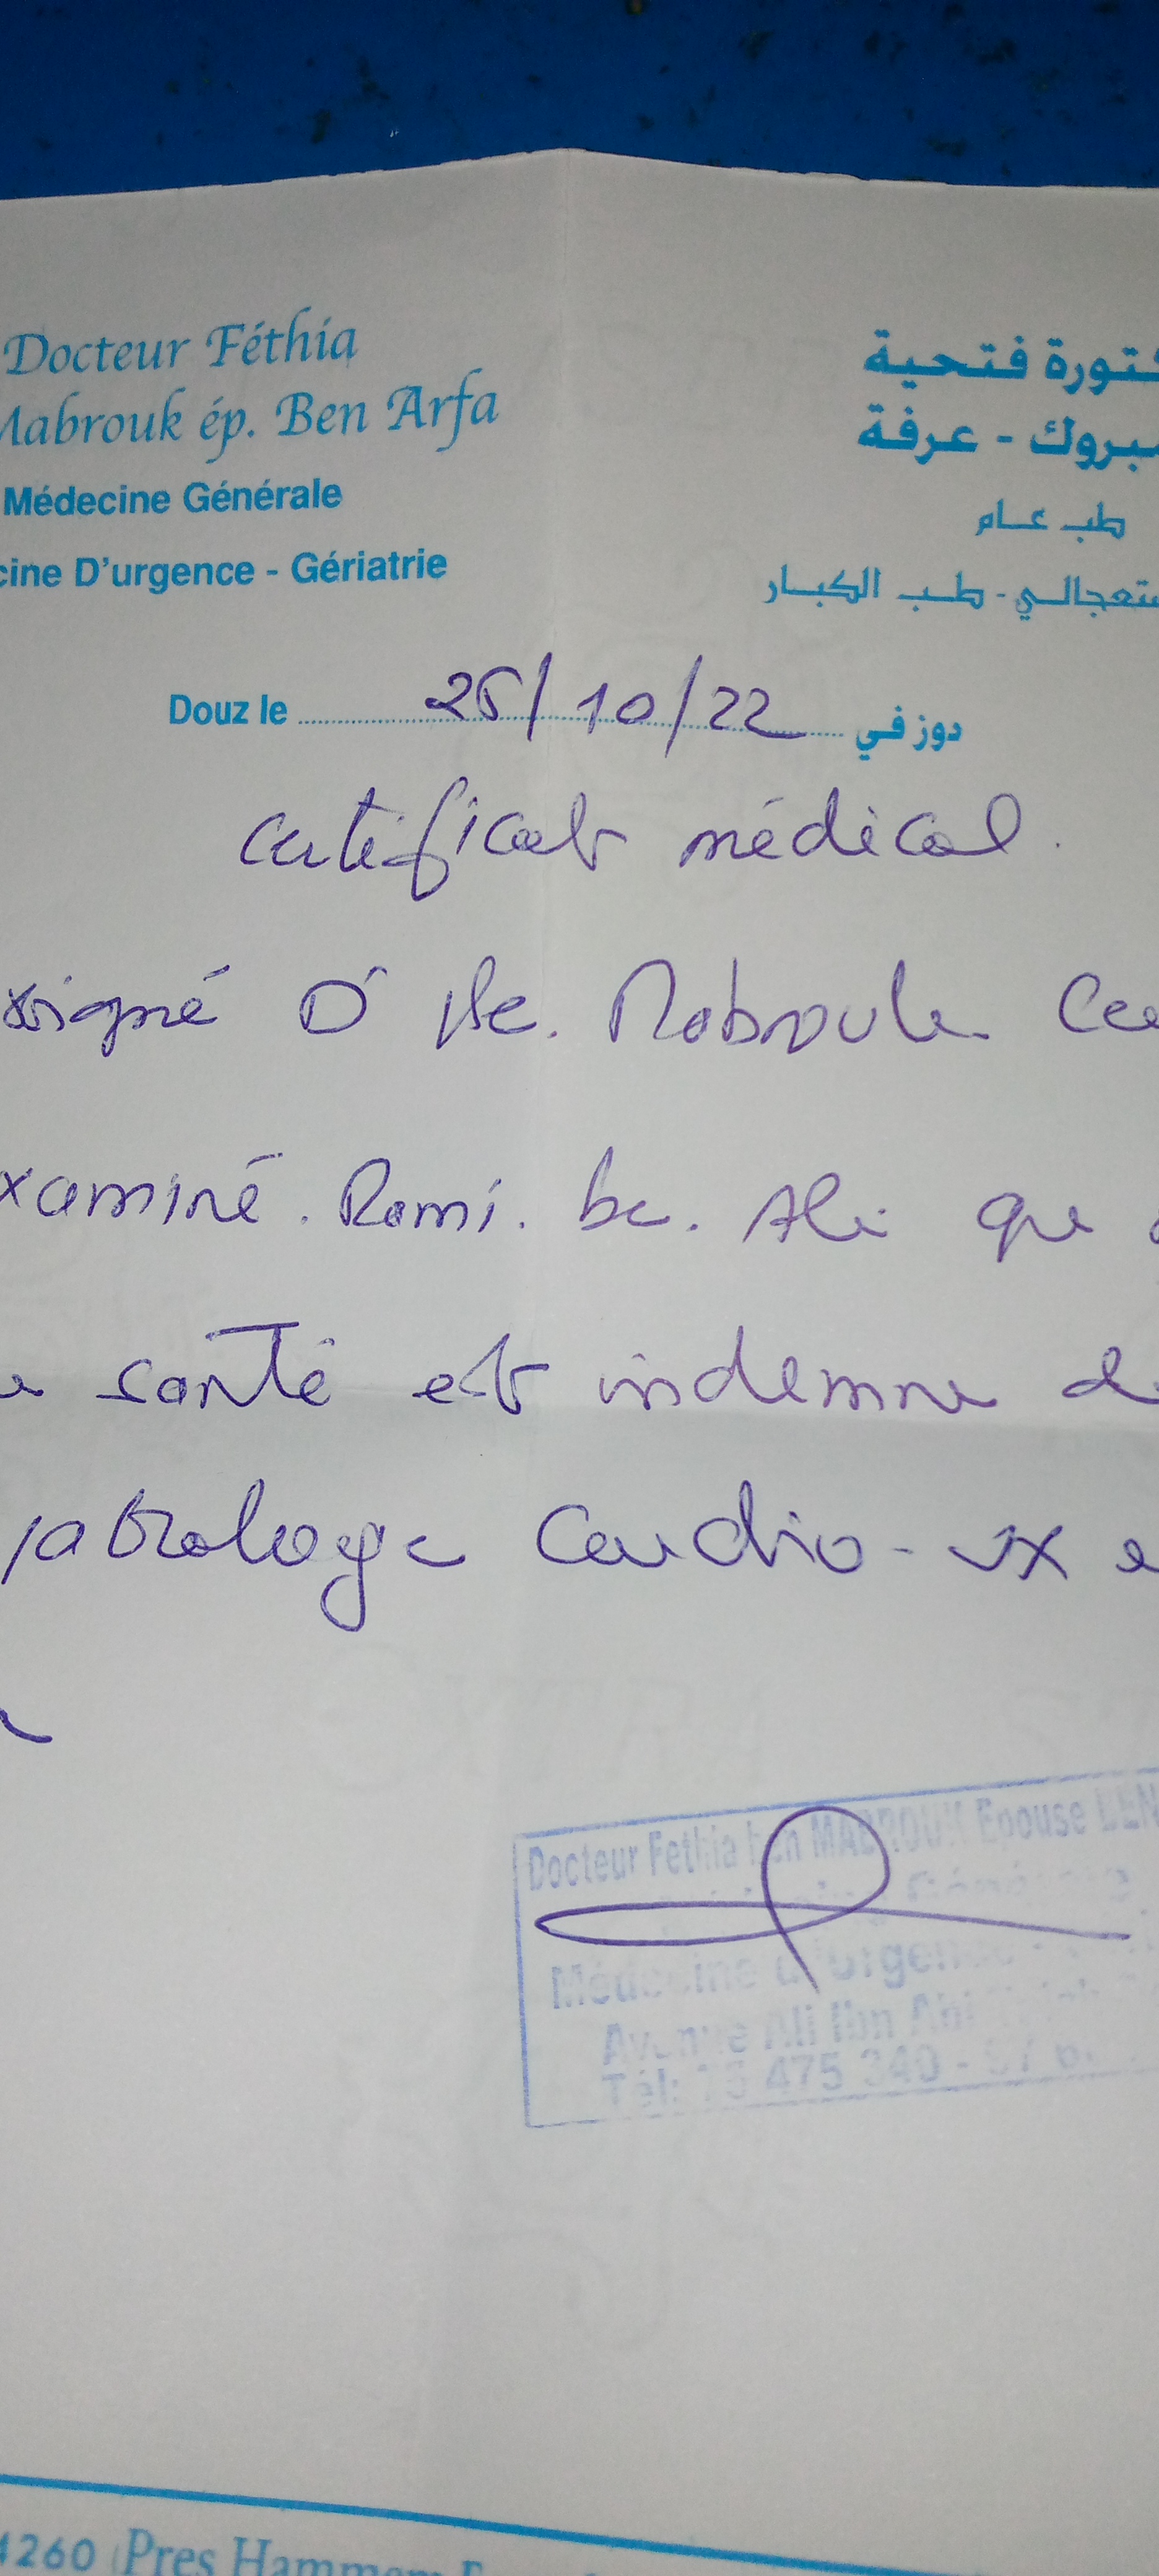 Docteur Féthia
Mabrouk ép. Ben Arfa
Médecine Générale
cine D'urgence - Gériatrie
كتورة فتحية
مبروك - عرفة
طب عام
ستعجالي - طب الكبار
Douz le 25/10/22 دوز في
certificat médical.
ssigné Dr Be. Mabrouk Cer
xaminé. Rami. be. Ali que
santé est indemne de
pathologie Cardio-vx e
Docteur Fethia ben MABROUK Epouse BEN
Médecine d'Urgence
Avenue Ali Ibn Abi
Tél: 75 475 340 - 97
4260 Pres Hammam